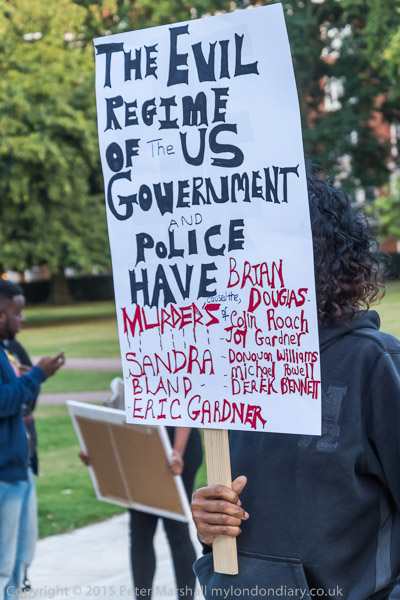 THE EVIL
REGIME
OF The US
GOVERNMENT
AND
POLICE
HAVE caused the
MURDERS of
SANDRA
BLAND
ERIC GARDNER
BRIAN
DOUGLAS
Colin Roach
Joy Gardner
Michael Powell
DEREK BENNETT
Copyright © 2015 Peter Marshall mylondondiary.co.uk